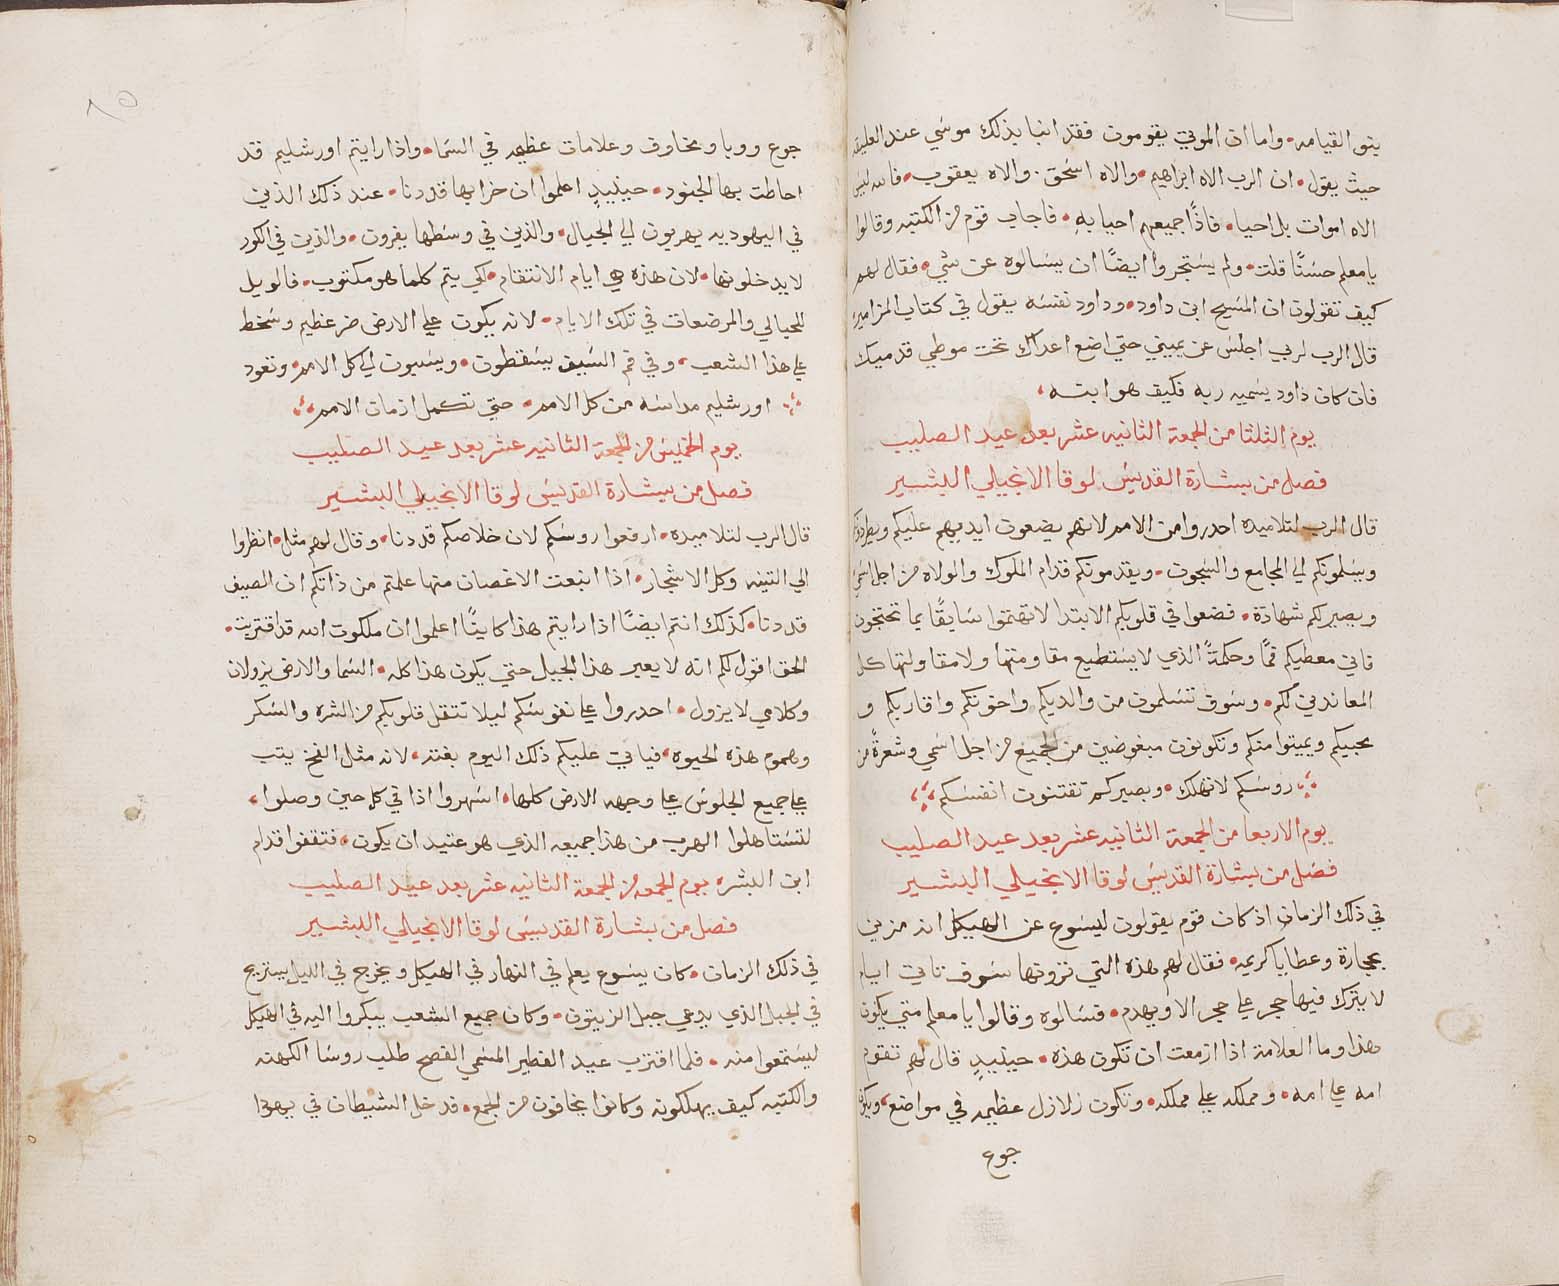 بنو القيامه. واما ان الموتي يقومون فقد انبا بذلك موسي عند العليقه
حيث يقول. ان الرب الاه ابراهيم. والاه اسحق. والاه يعقوب. فالله ليس
الاه اموات بل احيا. فاذًا جميعهم احيا به. فاجاب قوم من الكتبه وقالوا
يا معلم حسنًا قلت. ولم يستجروا ايضًا ان يسالوه عن شي. فقال لهم
كيف تقولون ان المسيح ابن داود. وداود نفسه يقول في كتاب المزامير
قال الرب لربي اجلس عن يميني حتي اضع اعداك تحت موطي قدميك
فان كان داود يسميه ربه فكيف هو ابنه
يوم الثلثا من الجمعة الثانيه عشر بعد عيد الصليب
فصل من بشارة القديس لوقا الانجيلي البشير
قال الرب لتلاميده احدروا من الامم لانهم يضعون ايديهم عليكم ويطردوكم
ويسلمونكم الي المجامع والسجون. ويقدمونكم قدام الملوك والولاه من اجل اسمي
ويصير لكم شهادة. فضعوا في قلوبكم الابتدا لا تهتموا سابقًا بما تحتجون
فاني معطيكم فمًا وحكمةً الذي لا يستطيع مقاومتها ولا مقاولتها كل
المعاندين لكم. وسوف تسلمون من والديكم واخوتكم واقاربكم و
محبيكم ويميتوا منكم وتكونون مبغوضين من الجميع من اجل اسمي وشعرةً من
روسكم لا تهلك. وبصبركم تقتنون انفسكم
يوم الاربعا من الجمعة الثانيه عشر بعد عيد الصليب
فصل من بشارة القديس لوقا الانجيلي البشير
في ذلك الزمان اذ كان قوم يقولون ليسوع عن الهيكل انه مزين
بحجارة وعطايا كريمه. فقال لهم هذه التي ترونها سوف تاتي ايام
لا يترك فيها حجر علي حجر الا ويهدم. فسالوه وقالوا يا معلم متي يكون
هذا وما العلامة اذا ازمعت ان تكون هذه. حينيدٍ قال لهم تقوم
امه علي امه. ومملكه علي مملكه. وتكون زلازل عظيمه في مواضع، ويكون
جوع
٨٥
جوع ووبا ومخاوف وعلامات عظيمه في السما. واذا رايتم اورشليم قد
احاطت بها الجنود. حينيدٍ اعلموا ان خرابها قد دنا. عند ذلك الذين
في اليهوديه يهربون الي الجبال. والذين في وسطها يفرون. والذين في الكور
لا يدخلونها. لان هذه هي ايام الانتقام. لكي يتم كلما هو مكتوب. فالويل
للحبالي والمرضعات في تلك الايام. لانه يكون علي الارض ضر عظيم وسخط
علي هذا الشعب، وفي فم السيف يسقطون. ويسبون الي كل الامم. وتعود
اورشليم مداسه من كل الامم. حتي تكمل ازمان الامم
يوم الخميس من الجمعة الثانيه عشر بعد عيد الصليب
فصل من بشارة القديس لوقا الانجيلي البشير
قال الرب لتلاميده. ارفعوا روسكم لان خلاصكم قد دنا. وقال لهم مثل. انظروا
الي التينه وكل الاشجار. اذا اينعت الاغصان منها علمتم من ذاتكم ان الصيف
قد دنا. كذلك انتم ايضًا اذا رايتم هذا كاينًا اعلموا ان ملكوت الله قد اقتربت.
الحق اقول لكم انه لا يعبر هذا الجيل حتي يكون هذا كله. السما والارض يزولان
وكلامي لا يزول. احدروا علي نفوسكم ليلا تتقل قلوبكم من الشره والسكر
وهموم هذه الحيوه، فياتي عليكم ذلك اليوم بغته، لانه مثل الفخ يتب
علي جميع الجلوس علي وجهه الارض كلها. اسهروا اذا في كل حين وصلوا،
لتستاهلوا الهرب من هذا جميعه الذي هو عتيد ان يكون، فتقفوا قدام
ابن البشر. يوم الجمعه من الجمعة الثانيه عشر بعد عيد الصليب
فصل من بشارة القديس لوقا الانجيلي البشير
في ذلك الزمان. كان يسوع يعلم في النهار في الهيكل ويخرج في الليل يستريح
في الجبل الذي يدعي جبل الزيتون. وكان جميع الشعب يبكروا اليه في الهيكل
ليستمعوا منه. فلما اقترب عيد الفطير المسمي الفصح طلب روسا الكهنه
والكتبه كيف يهلكونه وكانوا يخافون من الجمع. فدخل الشيطان في يهودا